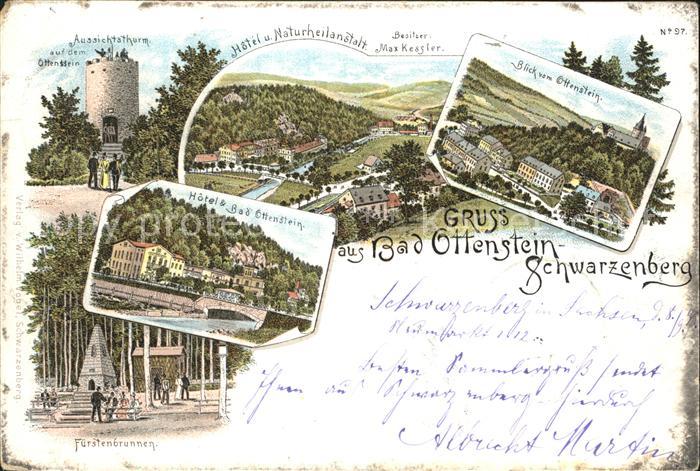 Aussichtsthurm
auf dem
Ottenstein
Hôtel u. Naturheilanstalt.
Besitzer:
Max Kessler.
No 97.
Blick vom Ottenstein.
Hôtel & Bad Ottenstein.
GRUSS
aus Bad Ottenstein-
Schwarzenberg
Fürstenbrunnen.
Verlag v. Wilhelm Vogel, Schwarzenberg
Schwarzenberg in Sachsen, d. 8/
Neumarkt 112.
besten Sammlergruß sendet
Ihnen aus Schwarzenberg hierdurch
Albrecht Martin